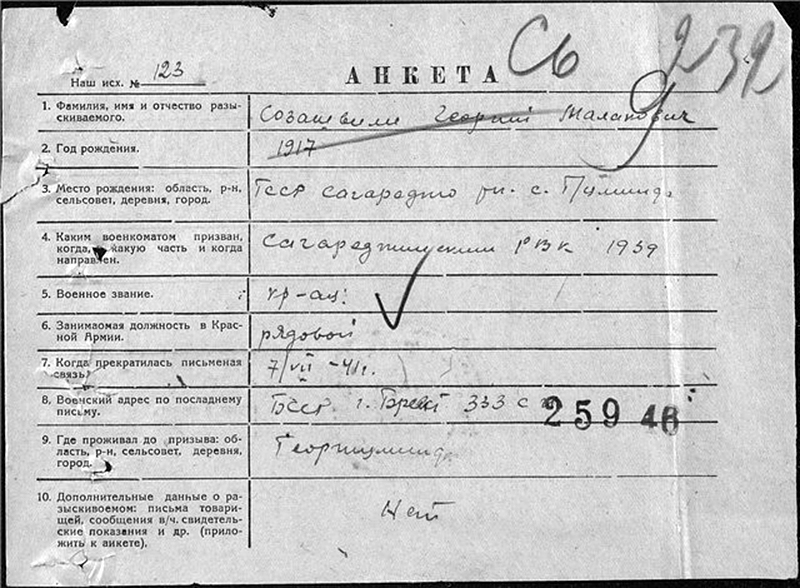 Сб 232
Наш исх. № 123
АНКЕТА
1. Фамилия, имя и отчество разы-
скиваемого.
Созашвили Георгий Малакович
2. Год рождения.
1917
3. Место рождения: область, р-н,
сельсовет, деревня, город.
ГССР Сагареджо рн. с.
4. Каким военкоматом призван,
когда, в какую часть и когда
направлен.
РВК 1939
5. Военное звание.
кр-ац.
6. Занимаемая должность в Крас-
ной Армии.
рядовой
7. Когда прекратилась письменая
связь?
7/VII-41г.
8. Военский адрес по последнему
письму.
БССР г. Брест 333 с
259 46
9. Где проживал до призыва: об-
ласть, р-н, сельсовет, деревня,
город.
10. Дополнительные данные о ра-
зыскиваемом: письма товари-
щей, сообщения в/ч. свидетель-
ские показания и др. (прило-
жить к анкете).
Нет